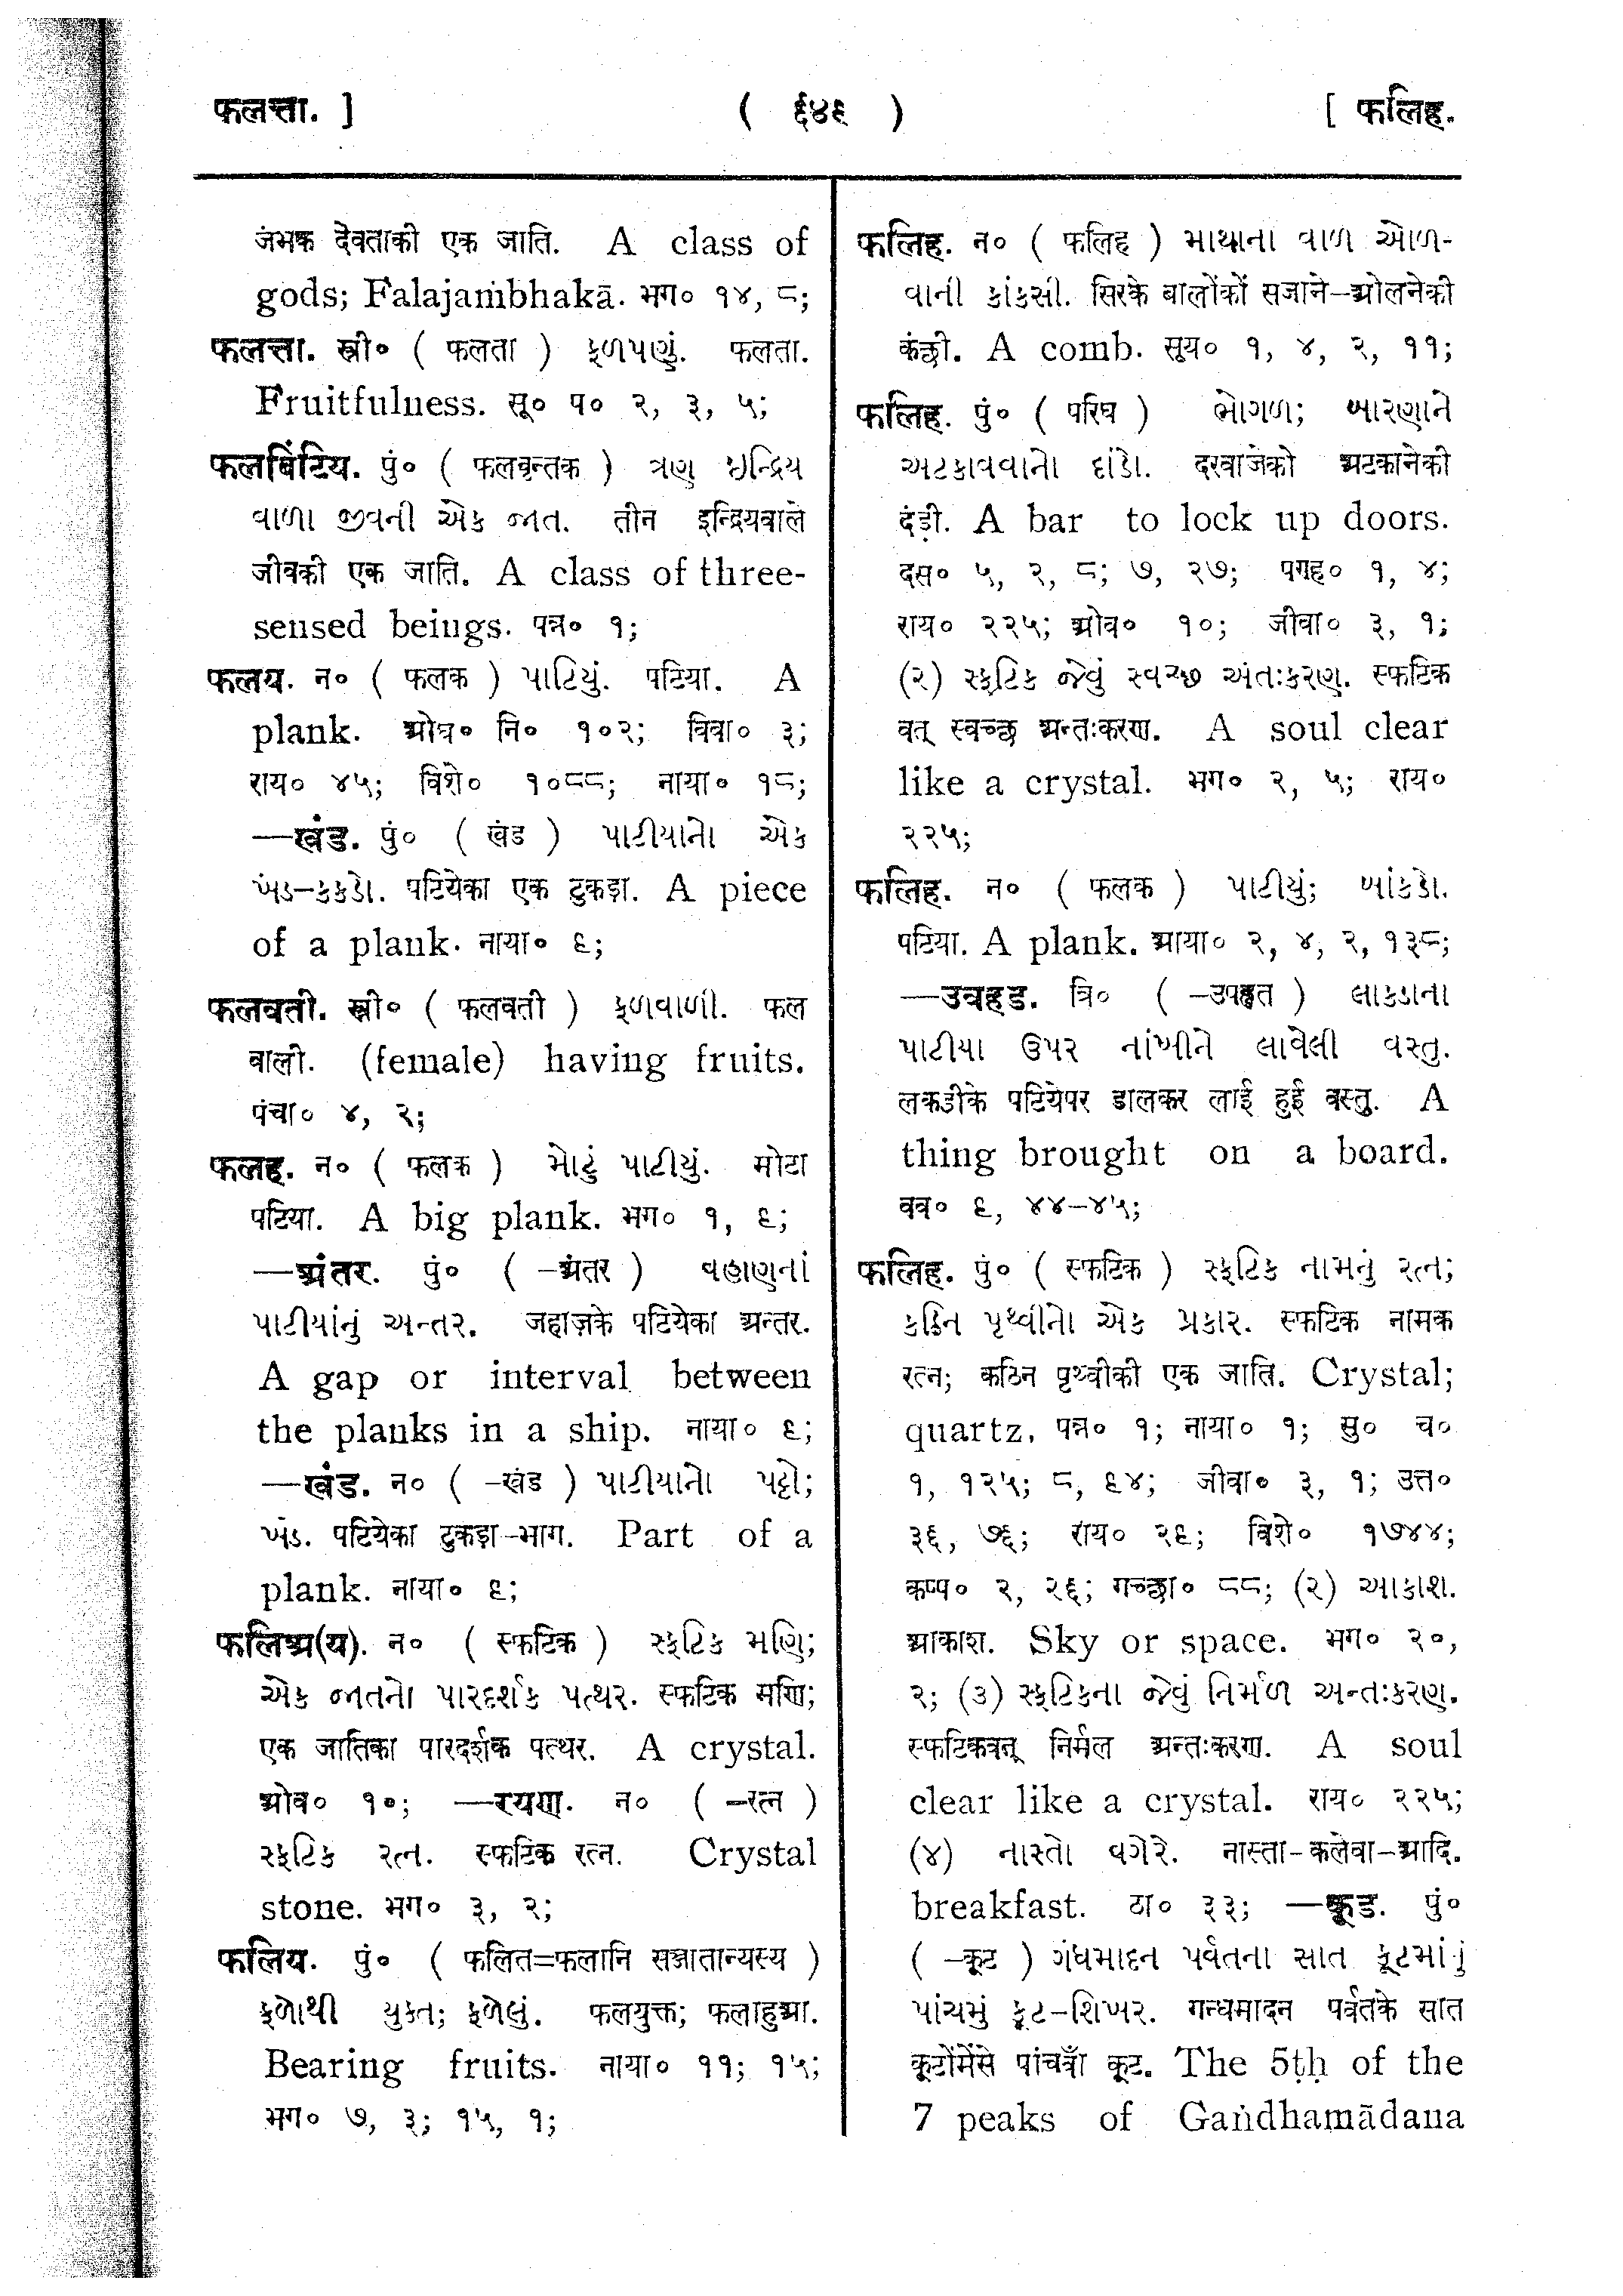 फलत्ता. ]
( ६४६ )
[ फलिह.
जंभक देवताकी एक जाति. A class of
gods; Falajaṁbhakā. भग० १४, ८;
फलत्ता. स्त्री० ( फलता ) ફળપણું. फलता.
Fruitfulness. सू० प० २, ३, ५;
फलबिंटिय. पुं० ( फलवृन्तक ) ત્રણ ઇન્દ્રિય
વાળા જીવની એક જાત. तीन इन्द्रियवाले
जीवकी एक जाति. A class of three-
sensed beings. पन्न० १;
फलय. न० ( फलक ) પાટિયું. पटिया. A
plank. ओघ० नि० १०२; विवा० ३;
राय० ४५; विशे० १०८८; नाया० १८;
—खंड. पुं० ( खंड ) પાટીયાનો એક
ખંડ-કકડો. पटियेका एक टुकड़ा. A piece
of a plank. नाया० ६;
फलवती. स्त्री० ( फलवती ) ફળવાળી. फल
वाली. (female) having fruits.
पंचा० ४, २;
फलह. न० ( फलक ) મોટું પાટીયું. मोटा
पटिया. A big plank. भग० १, ६;
—अंतर. पुं० ( -अंतर ) વહાણનાં
પાટીયાંનું અન્તર. जहाज़के पटियेका अन्तर.
A gap or interval between
the planks in a ship. नाया० ६;
—खंड. न० ( -खंड ) પાટીયાનો પટ્ટો;
ખંડ. पटियेका टुकड़ा-भाग. Part of a
plank. नाया० ६;
फलिअ(य). न० ( स्फटिक ) સ્ફટિક મણિ;
એક જાતનો પારદર્શક પત્થર. स्फटिक मणि;
एक जातिका पारदर्शक पत्थर. A crystal.
ओव० १०; —रयण. न० ( -रत्न )
સ્ફટિક રત્ન. स्फटिक रत्न. Crystal
stone. भग० ३, २;
फलिय. पुं० ( फलित=फलानि सञ्जातान्यस्य )
ફળોથી યુક્ત; ફળેલું. फलयुक्त; फलाहुआ.
Bearing fruits. नाया० ११; १५;
भग० ७, ३; १५, १;
फलिह. न० ( फलिह ) માથાના વાળ ઓળ-
વાની કાંકસી. सिरके बालोंकों सजाने-ओलनेकी
कंछी. A comb. सूय० १, ४, २, ११;
फलिह. पुं० ( परिघ ) ભોગળ; બારણાને
અટકાવવાનો દાંડો. दरवाजेको अटकानेकी
दंड़ी. A bar to lock up doors.
दस० ५, २, ८; ७, २७; पगह० १, ४;
राय० २२५; ओव० १०; जीवा० ३, १;
(२) સ્ફટિક જેવું સ્વચ્છ અંતઃકરણ. स्फटिक
वत् स्वच्छ अन्तःकरण. A soul clear
like a crystal. भग० २, ५; राय०
२२५;
फलिह. न० ( फलक ) પાટીયું; ખાંકડો.
पटिया. A plank. आया० २, ४, २, १३८;
—उवहड. त्रि० ( -उपहृत ) લાકડાના
પાટીયા ઉપર નાંખીને લાવેલી વસ્તુ.
लकडीके पटियेपर डालकर लाई हुई वस्तु. A
thing brought on a board.
वव० ६, ४४-४५;
फलिह. पुं० ( स्फटिक ) સ્ફટિક નામનું રત્ન;
કઠિન પૃથ્વીનો એક પ્રકાર. स्फटिक नामक
रत्न; कठिन पृथ्वीकी एक जाति. Crystal;
quartz. पन्न० १; नाया० १; सु० च०
१, १२५; ८, ६४; जीवा० ३, १; उत्त०
३६, ७६; राय० २६; विशे० १७४४;
कप्प० २, २६; गच्छा० ८८; (२) આકાશ.
आकाश. Sky or space. भग० २०,
२; (૩) સ્ફટિકના જેવું નિર્મળ અન્તઃકરણ.
स्फटिकवत् निर्मल अन्तःकरण. A soul
clear like a crystal. राय० २२५;
(४) નાસ્તો વગેરે. नास्ता-कलेवा-आदि.
breakfast. ठा० ३३; —कूड. पुं०
( -कूट ) ગંધમાદન પર્વતના સાત કૂટમાંનું
પાંચમું કૂટ-શિખર. गन्धमादन पर्वतके सात
कूटोंमेंसे पांचवाँ कूट. The 5ṭḥ of the
7 peaks of Gaṅdhamādana